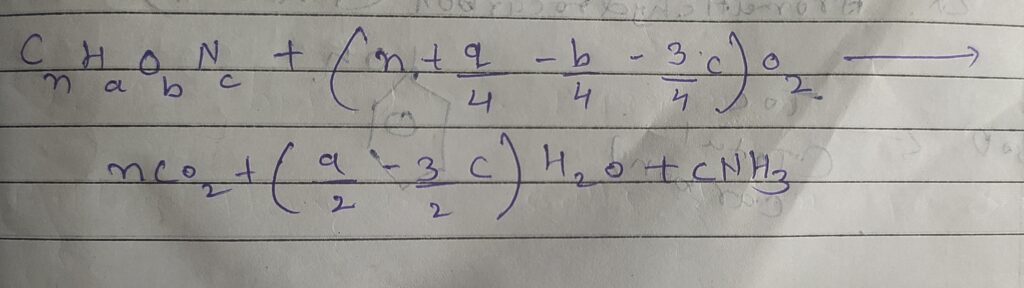 C_n H_a O_b N_c + (n + a/4 - b/4 - 3/4 c) O_2 ⟶
nCO_2 + (a/2 - 3/2 c) H_2O + cNH_3